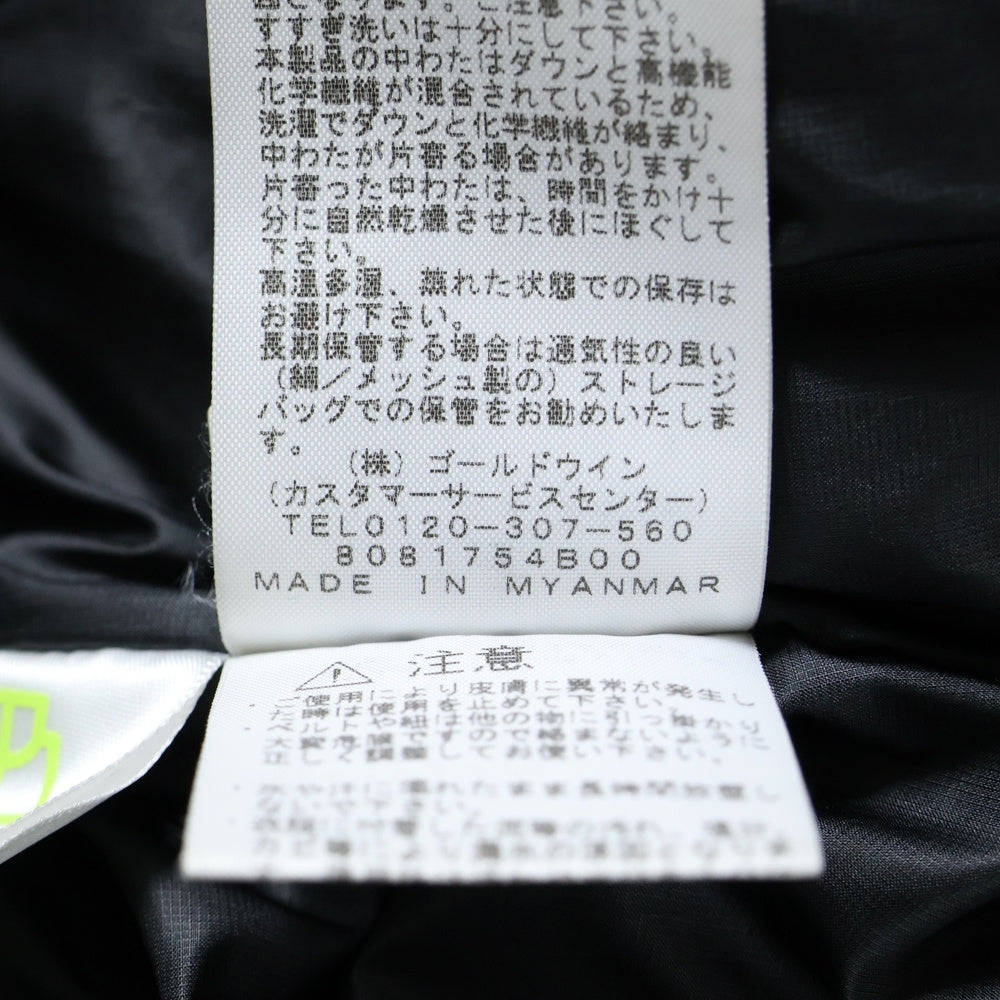 すすぎ洗いは十分にして下さい。
本製品の中わたはダウンと高機能
化学繊維が混合されているため、
洗濯でダウンと化学繊維が絡まり、
中わたが片寄る場合があります。
片寄った中わたは、時間をかけ十
分に自然乾燥させた後にほぐして
下さい。
高温多湿、蒸れた状態での保存は
お避け下さい。
長期保管する場合は通気性の良い
(綿/メッシュ製の)ストレージ
バッグでの保管をお勧めいたしま
す。
(株)ゴールドウイン
(カスタマーサービスセンター)
TEL0120-307-560
8081754B00
MADE IN MYANMAR
注意
ご使用により皮膚に異常が発生し
た時は使用を止めて下さい。